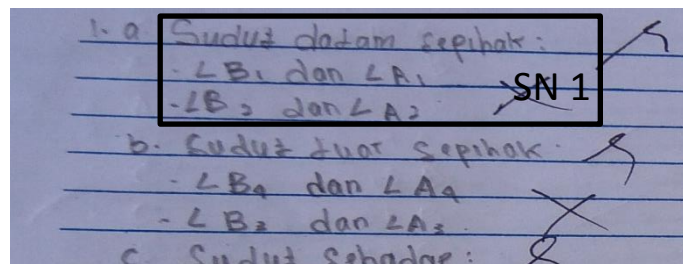 1. a Sudut dalam sepihak:
- ∠B₁ dan ∠A₁
SN 1
- ∠B₂ dan ∠A₂
b. Sudut luar sepihak.
- ∠B₄ dan ∠A₄
- ∠B₃ dan ∠A₃
c. Sudut sehadap: